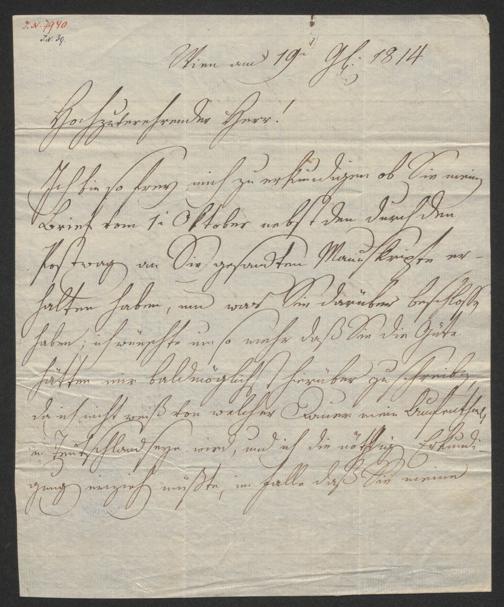 I.N. 7940
I.N. 39.
Wien am 19ⁿ 1814
Hochzuverehrender Herr!
Ich bin so frey mich zu erkundigen ob Sie mein
Brief vom 1ⁿ Oktober nebst den durch den
Postwag an Sie gesandten Manuskripte er-
halten haben, und was Sie darüber beschlosse
haben; ich wünschte um so mehr daß Sie die Güte
hätten mir baldmöglichst hierüber zu schreib
da ich nicht weiß von welcher Dauer mein Aufenthalt
in seyn wird, und ich die nöthig Erkundi-
gung einzieh müßte, im Falle daß Sie meine